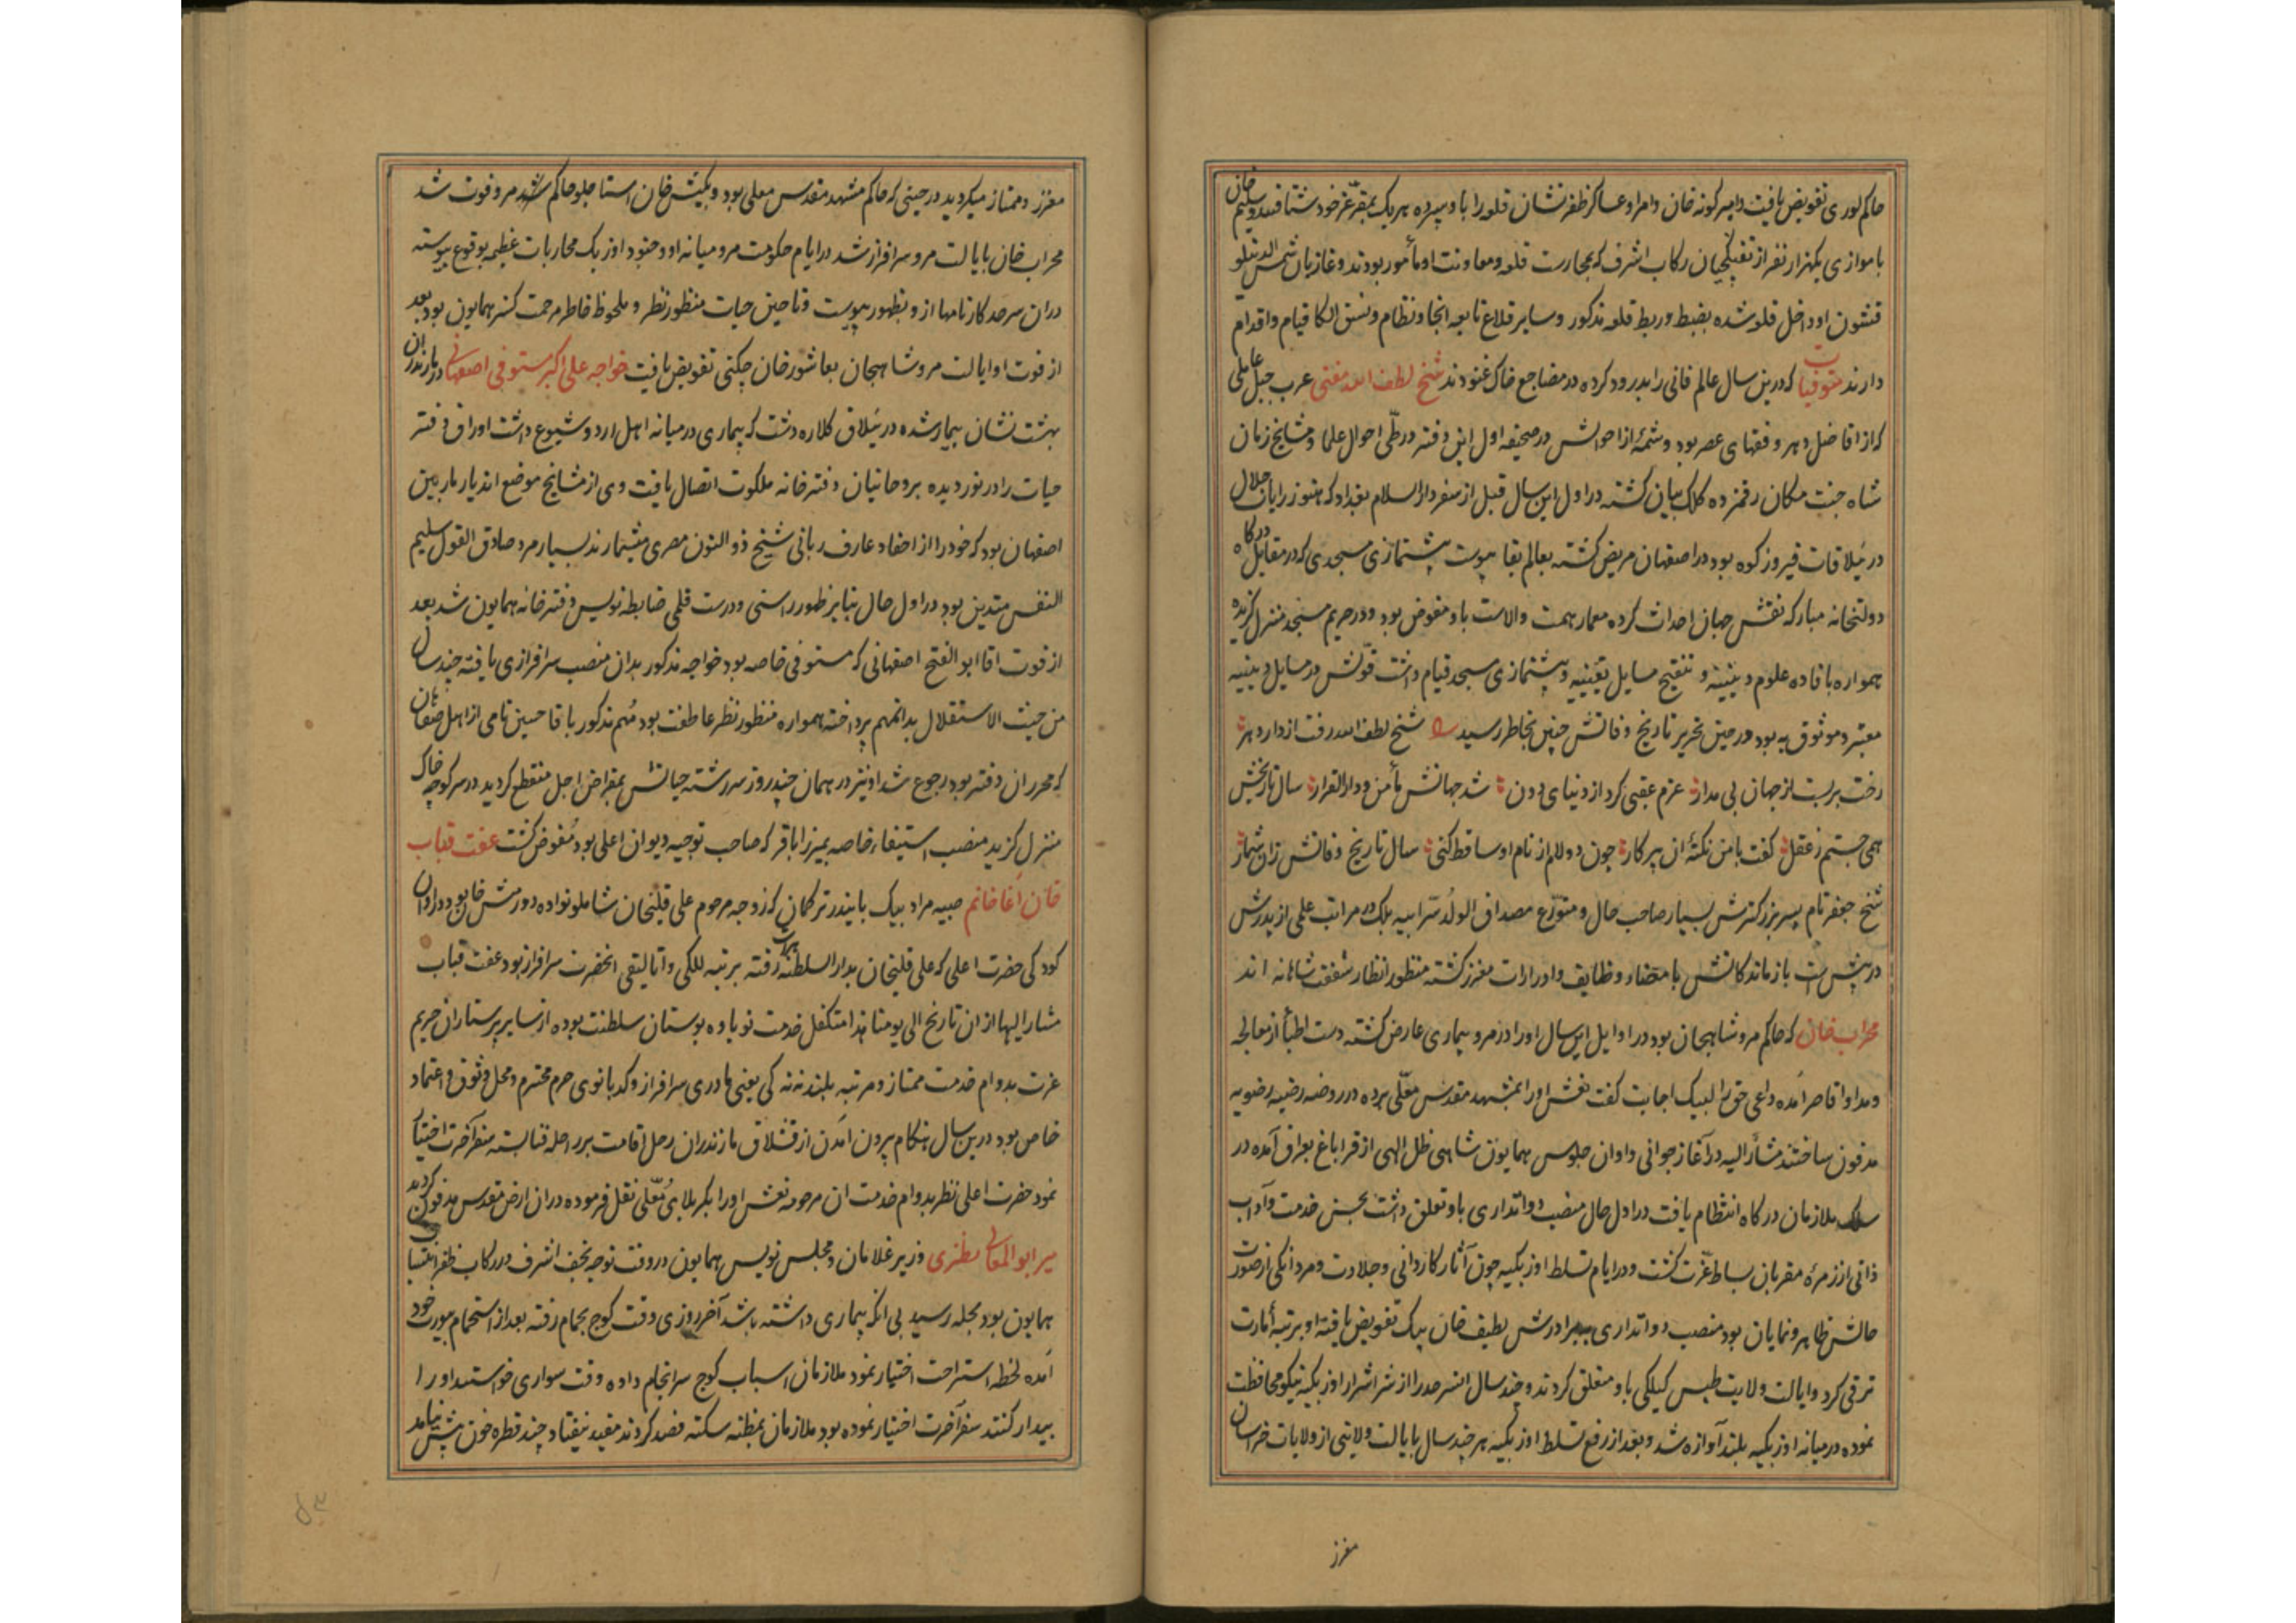 حاکم لوری تفویض یافت و امیر کونه خان و امرا و عساکر ظفر نشان قلعه را باو سپرده هر یک بمقر عز خود شتافتند و سلیم خان
با موازی یکهزار نفر از تفنکچیان رکاب اشرف که بحارست قلعه و معاونت او مأمور بودند و غازیان شمس الدینلو
قشون او داخل قلعه شده بضبط و ربط قلعه مذکور و سایر قلاع تابعه انجا و نظام و نسق الکا قیام و اقدام
دارند متوفیات که درین سال عالم فانی را بدرود کرده در مضاجع خاک غنودند شیخ لطف الله مفتی عرب جبل عاملی
که از افاضل دهر و فقهای عصر بود و شمهٔ از احوالش در صحیفه اول این دفتر در طی احوال علما و مشایخ زمان
شاه جنت مکان رقمزده کلک بیان کشته در اول این سال قبل از سفر دارالسلام بغداد که هنوز رایات جلال
در ییلاقات فیروزکوه بود در اصفهان مریض کشته بعالم بقا پیوست پیشنمازی مسجدی که در مقابل درکاه
دولتخانه مبارکه نقش جهان احداث کرده معمار همت والاست باو مفوض بود و در حریم مسجد منزل کزیده
همواره بافاده علوم دینیه و تنقیح مسایل یقینیه و پیشنمازی مسجد قیام داشت قولش در مسایل دینیه
معتبر و موثوق به بود در حین تحریر تاریخ وفاتش چنین بخاطر رسید شیخ لطف الله رفت از دار دهر
رخت بربست از جهان بی مدار عزم عقبی کرد از دنیای دون شد جهانش مأمن و دارالقرار سال تاریخش
همی جستم ز عقل کفت با من نکتهٔ ان پیر کار چون دو لام از نام او ساقط کنی سال تاریخ وفاتش زان شمار
شیخ جعفر نام پسر بزرکترش بسیار صاحب حال و متورع مصداق الولد سر ابیه بلک در مراتب علمی از پدرش
در پیش است بازماندکانش بامضاء وظایف و ادرارات معزز کشته منظور انظار شفقت شاهانه اند
محراب خان که حاکم مرو شاهیجان بود در اوایل این سال او را در مرو بیماری عارض کشته دست اطبا از معالجه
و مداوا قاصر آمده داعی حق را لبیک اجابت کفت نعش او را بمشهد مقدس معلی برده در روضه رضیه رضویه
مدفون ساختند مشار الیه در آغاز جوانی و اوان جلوس همایون شاهی ظل الهی از قراباغ بعراق آمده در
سلک ملازمان درکاه انتظام یافت در اول حال منصب دواتداری باو تعلق داشت بحسن خدمت و آداب
ذاتی از زمرهٔ مقربان بساط عزت کشت و در ایام تسلط اوزبکیه چون آثار کاردانی و جلادت و مردانکی از صورت
حالش ظاهر و نمایان بود منصب دواتداری ببرادرش لطیف خان بیک تفویض یافته او برتبهٔ امارت
ترقی کرد و ایالت ولایت طبس کیلکی باو متعلق کردند و چند سال انسرحد را از شر اشرار اوزبکیه نیکو محافظت
نموده در میانه اوزبکیه بلند آوازه شد و بعد از رفع تسلط اوزبکیه هر چند سال بایالت ولایتی از ولایات خراسان
معزز
معزز و ممتاز میکردید در حینی که حاکم مشهد مقدس معلی بود و بکتش خان استاجلو حاکم مرو فوت شد
محراب خان بایالت مرو سرافراز شد در ایام حکومت مرو میانه او و جنود اوزبک محاربات عظیمه بوقوع پیوسته
دران سرحد کارنامها ازو بظهور پیوست و تا حین حیات منظور نظر و ملحوظ خاطر مرحمت کستر همایون بود بعد
از فوت او ایالت مرو شاهیجان بعاشور خان چکنی تفویض یافت خواجه علی اکبر مستوفی اصفهانی در مازندران
بهشت نشان بیمار شده در ییلاق کلاره دشت که بیماری در میانه اهل اردو شیوع داشت اوراق دفتر
حیات را در نوردیده بروحانیان دفترخانه ملکوت اتصال یافت وی از مشایخ موضع اندیار ماربین
اصفهان بود که خود را از احفاد عارف ربانی شیخ ذوالنون مصری میشمارند بسیار مرد صادق القول سلیم
النفس متدین بود در اول حال بنابر ظهور راستی و درست قلمی ضابطه نویس دفترخانه همایون شد بعد
از فوت اقا ابو الفتح اصفهانی که مستوفی خاصه بود خواجه مذکور بدان منصب سرافرازی یافته چند سال
من حیث الاستقلال بدانمهم پرداخته همواره منظور نظر عاطفت بود مهم مذکور باقا حسین نامی از اهل صفاهان
که محرران دفتر بود رجوع شد او نیز در همان چند روز سر رشته حیاتش بمقراض اجل منقطع کردید در سر کوچه خاک
منزل کزید منصب استیفاء خاصه بمیرزا باقر که صاحب توجیه دیوان اعلی بود مفوض کشت عفت قباب
خان آغا خانم صبیه مراد بیک بایندر ترکمان که زوجه مرحوم علی قلیخان شاملو نواده دورمش خان بود در اوان
کودکی حضرت اعلی که علی قلیخان بدار السلطنه هراة رفته برتبه للکی و اتالیقی انحضرت سرافراز بود عفت قباب
مشار الیها از ان تاریخ الی یومنا هذا متکفل خدمت نوباوه بوستان سلطنت بوده از سایر پرستاران حریم
عزت بدوام خدمت ممتاز و مرتبه بلند ننه کی یعنی مادری سرافراز و کدبانوی حرم محترم و محل وثوق و اعتماد
خاص بود درین سال هنکام بیرون آمدن از قشلاق مازندران رحل اقامت بر راحله فنا بسته سفر آخرت اختیار
نمود حضرت اعلی نظر بدوام خدمت ان مرحومه نعش او را بکربلای معلی نقل فرموده دران ارض مقدس مدفون کردید
میر ابو المعالی نطنزی وزیر غلامان و مجلس نویس همایون در وقت توجه نجف اشرف در رکاب ظفر انتساب
همایون بود بحله رسید بی انکه بیماری داشته باشد آخر روزی وقت کوچ بحمام رفته بعد از استحمام بیورت خود
آمده لحظه استراحت اختیار نمود ملازمان اسباب کوچ سرانجام داده وقت سواری خواستند او را
بیدار کنند سفر آخرت اختیار نموده بود ملازمان بمظنه سکته فصد کردند مفید نیفتاد چند قطره خون بیش نیامد